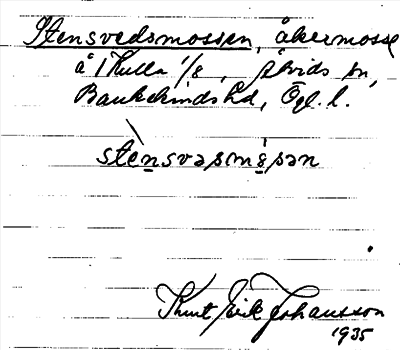 Stensvedsmossen, åkermosse
å Kulla 1/8, Åtvids sn,
Bankekinds hd, Ögl. l.
stènsvəsmòsən
Knut Erik Johansson
1935